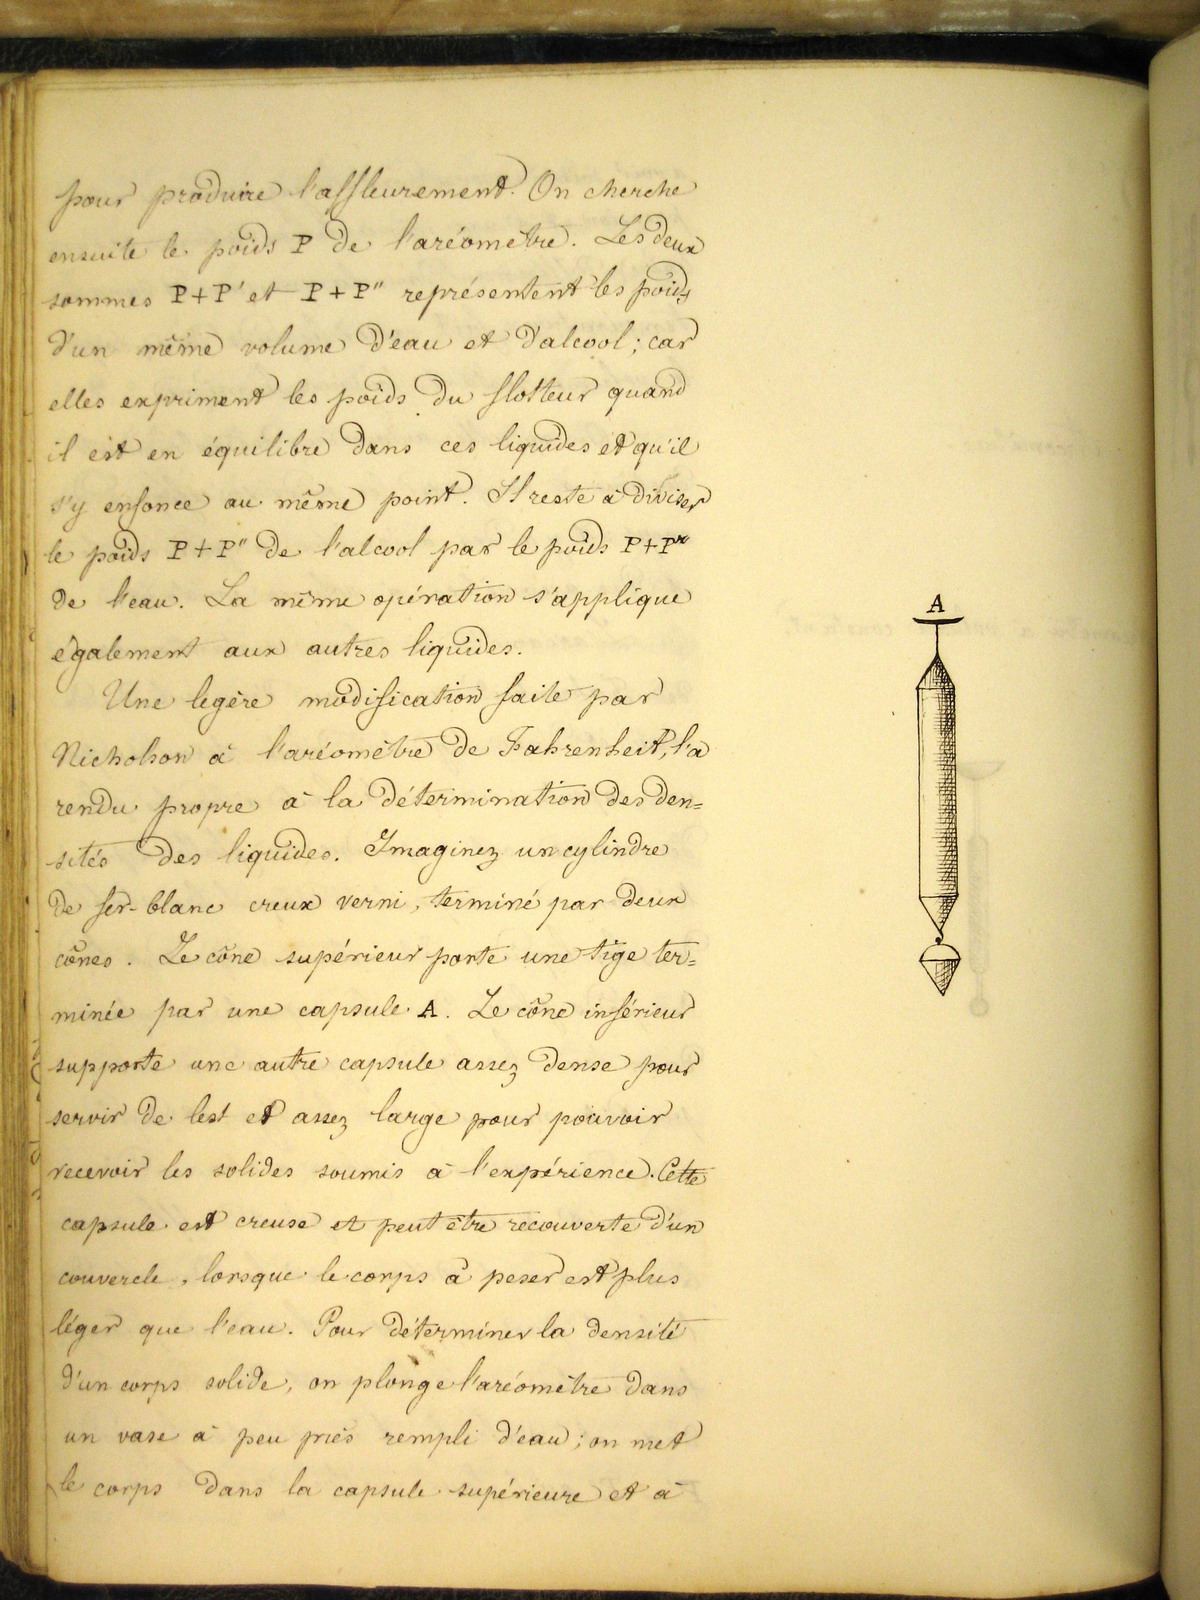 pour produire l'affleurement. On cherche
ensuite le poids P de l'aréomètre. Les deux
sommes P+P' et P+P" représentent les poids
d'un même volume d'eau et d'alcool; car
elles expriment les poids du flotteur quand
il est en équilibre dans ces liquides et qu'il
s'y enfonce au même point. Il reste à diviser
le poids P+P" de l'alcool par le poids
de l'eau. La même opération s'applique
également aux autres liquides.
Une legère modification faite par
Nicholson à l'aréomètre de Fahrenheit, l'a
rendu propre à la détermination des den=
sités des liquides. Imaginez un cylindre
de fer-blanc creux verni, terminé par deux
cônes. Le cône supérieur porte une tige ter=
minée par une capsule A. Le cône inférieur
supporte une autre capsule assez dense pour
servir de lest et assez large pour pouvoir
recevoir les solides soumis à l'expérience. Cette
capsule est creuse et peut être recouverte d'un
couvercle, lorsque le corps à peser est plus
léger que l'eau. Pour déterminer la densité
d'un corps solide, on plonge l'aréomètre dans
un vase à peu près rempli d'eau; on met
le corps dans la capsule supérieure et à
A